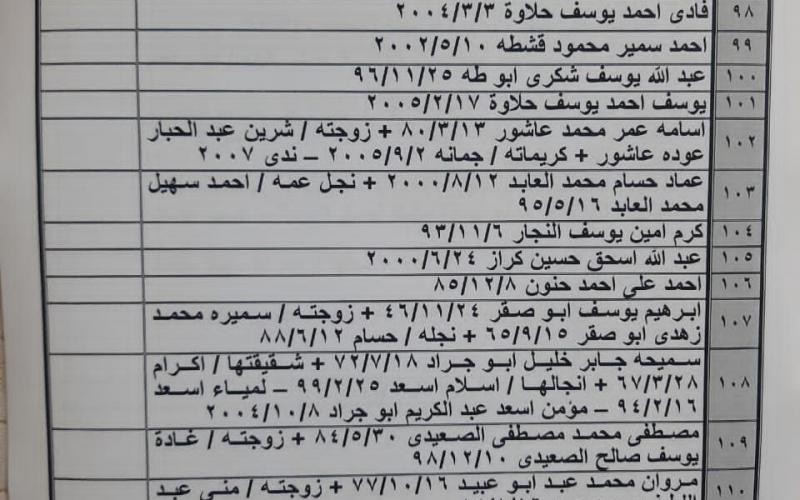 ٩٨ فادى احمد يوسف حلاوة ٢٠٠٤/٣/٣
٩٩ احمد سمير محمود قشطه ٢٠٠٢/٥/١٠
١٠٠ عبد الله يوسف شكرى ابو طه ٩٦/١١/٢٥
١٠١ يوسف احمد يوسف حلاوة ٢٠٠٥/٢/١٧
١٠٢ اسامه عمر محمد عاشور ٨٠/٣/١٣ + زوجته / شرين عبد الحبار
عوده عاشور + كريماته / جمانه ٢٠٠٥/٩/٢ – ندى ٢٠٠٧
١٠٣ عماد حسام محمد العابد ٢٠٠٠/٨/١٢ + نجل عمه / احمد سهيل
محمد العابد ٩٥/٥/١٦
١٠٤ كرم امين يوسف النجار ٩٣/١١/٦
١٠٥ عبد الله اسحق حسين كراز ٢٠٠٠/٦/٢٤
١٠٦ احمد علي احمد حنون ٨٥/١٢/٨
١٠٧ ابرهيم يوسف ابو صقر ٤٦/١١/٢٤ + زوجته / سميره محمد
زهدى ابو صقر ٦٥/٩/١٥ + نجله / حسام ٨٨/٦/١٢
١٠٨ سميحه جابر خليل ابو جراد ٧٢/٧/١٨ + شقيقتها / اكرام
٦٧/٣/٢٨ + انجالها / اسلام اسعد ٩٩/٢/٢٥ – لمياء اسعد
٩٤/٢/١٦ – مؤمن اسعد عبد الكريم ابو جراد ٢٠٠٤/١٠/٨
١٠٩ مصطفى محمد مصطفى الصعيدى ٨٤/٥/٣٠ + زوجته / غادة
يوسف صالح الصعيدى ٩٨/١٢/١٠
١١٠ مروان محمد عيد ابو عبيد ٧٧/١٠/١٦ + زوجته / منى عبد